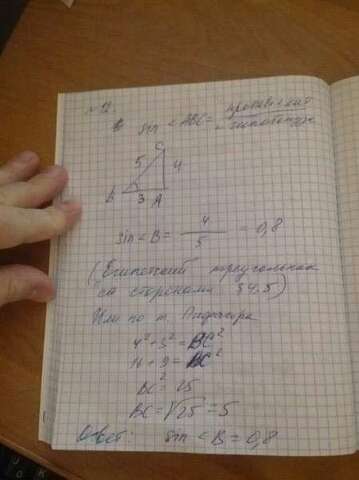 №12.
sin < ABC = противолежит / гипотенуза
C
5 4
B 3 A
sin < B = 4 / 5 = 0,8
(Египетский треугольник
со сторонами 3 4, 5)
Или по т. Пифагора
4² + 3² = BC²
16 + 9 = BC²
BC² = 25
BC = √25 = 5
Ответ: sin < B = 0,8